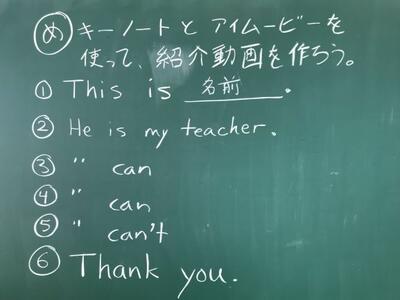 め キーノートとアイムービーを
使って、紹介動画を作ろう。
① This is 名前.
② He is my teacher.
③ " can
④ " can
⑤ " can't
⑥ Thank you.